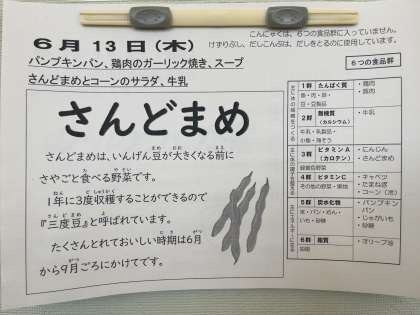 こんにゃくは、６つの食品群に入っていません。
けずりぶし、だしこんぶは、だしをとるのに使用しています。
６月１３日（木）
パンプキンパン、鶏肉のガーリック焼き、スープ
さんどまめとコーンのサラダ、牛乳
６つの食品群
さんどまめ
さんどまめは、いんげん豆が大きくなる前に
さやごと食べる野菜です。
１年に３度収穫することができるので
『三度豆』と呼ばれています。
たくさんとれておいしい時期は６月
から９月ごろにかけてです。
1群 たんぱく質
魚・肉・卵・
豆・豆製品
・鶏肉
・豚肉
2群 無機質
（カルシウム）
牛乳・乳製品・
小魚・海そう
・牛乳
3群 ビタミンA
（カロテン）
緑黄色野菜
・にんじん
・さんどまめ
4群 ビタミンC
その他の野菜・果物
・キャベツ
・たまねぎ
・コーン
5群 炭水化物
米・パン・めん・
いも・砂糖
・パンプキン
パン
・じゃがいも
・砂糖
6群 脂質
油脂
・オリーブ油